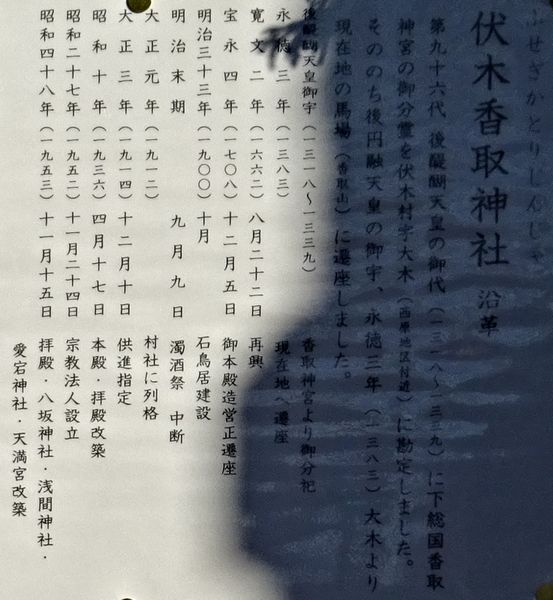 ふせぎかとりしんじゃ
伏木香取神社 沿革
第九十六代 後醍醐天皇の御代（一三一八～一三三九）に下総国香取
神宮の御分霊を伏木村字大木（西原地区付近）に勘定しました。
そののち後円融天皇の御宇、永徳三年（一三八三）大木より
現在地の馬場（香取山）に遷座しました。
後醍醐天皇御宇（一三一八～一三三九） 香取神宮より御分祀
永徳三年（一三八三） 現在地へ遷座
寛文二年（一六六二）八月二十二日 再興
宝永四年（一七〇八）十二月五日 御本殿造営正遷座
明治三十三年（一九〇〇）十月 石鳥居建設
明治末期 九月九日 濁酒祭 中断
大正元年（一九一二） 村社に列格
大正三年（一九一四）十二月十日 供進指定
昭和十年（一九三六）四月十七日 本殿・拝殿改築
昭和二十七年（一九五二）十一月二十四日 宗教法人設立
昭和四十八年（一九五三）十一月十五日 拝殿・八坂神社・浅間神社・
愛宕神社・天満宮改築